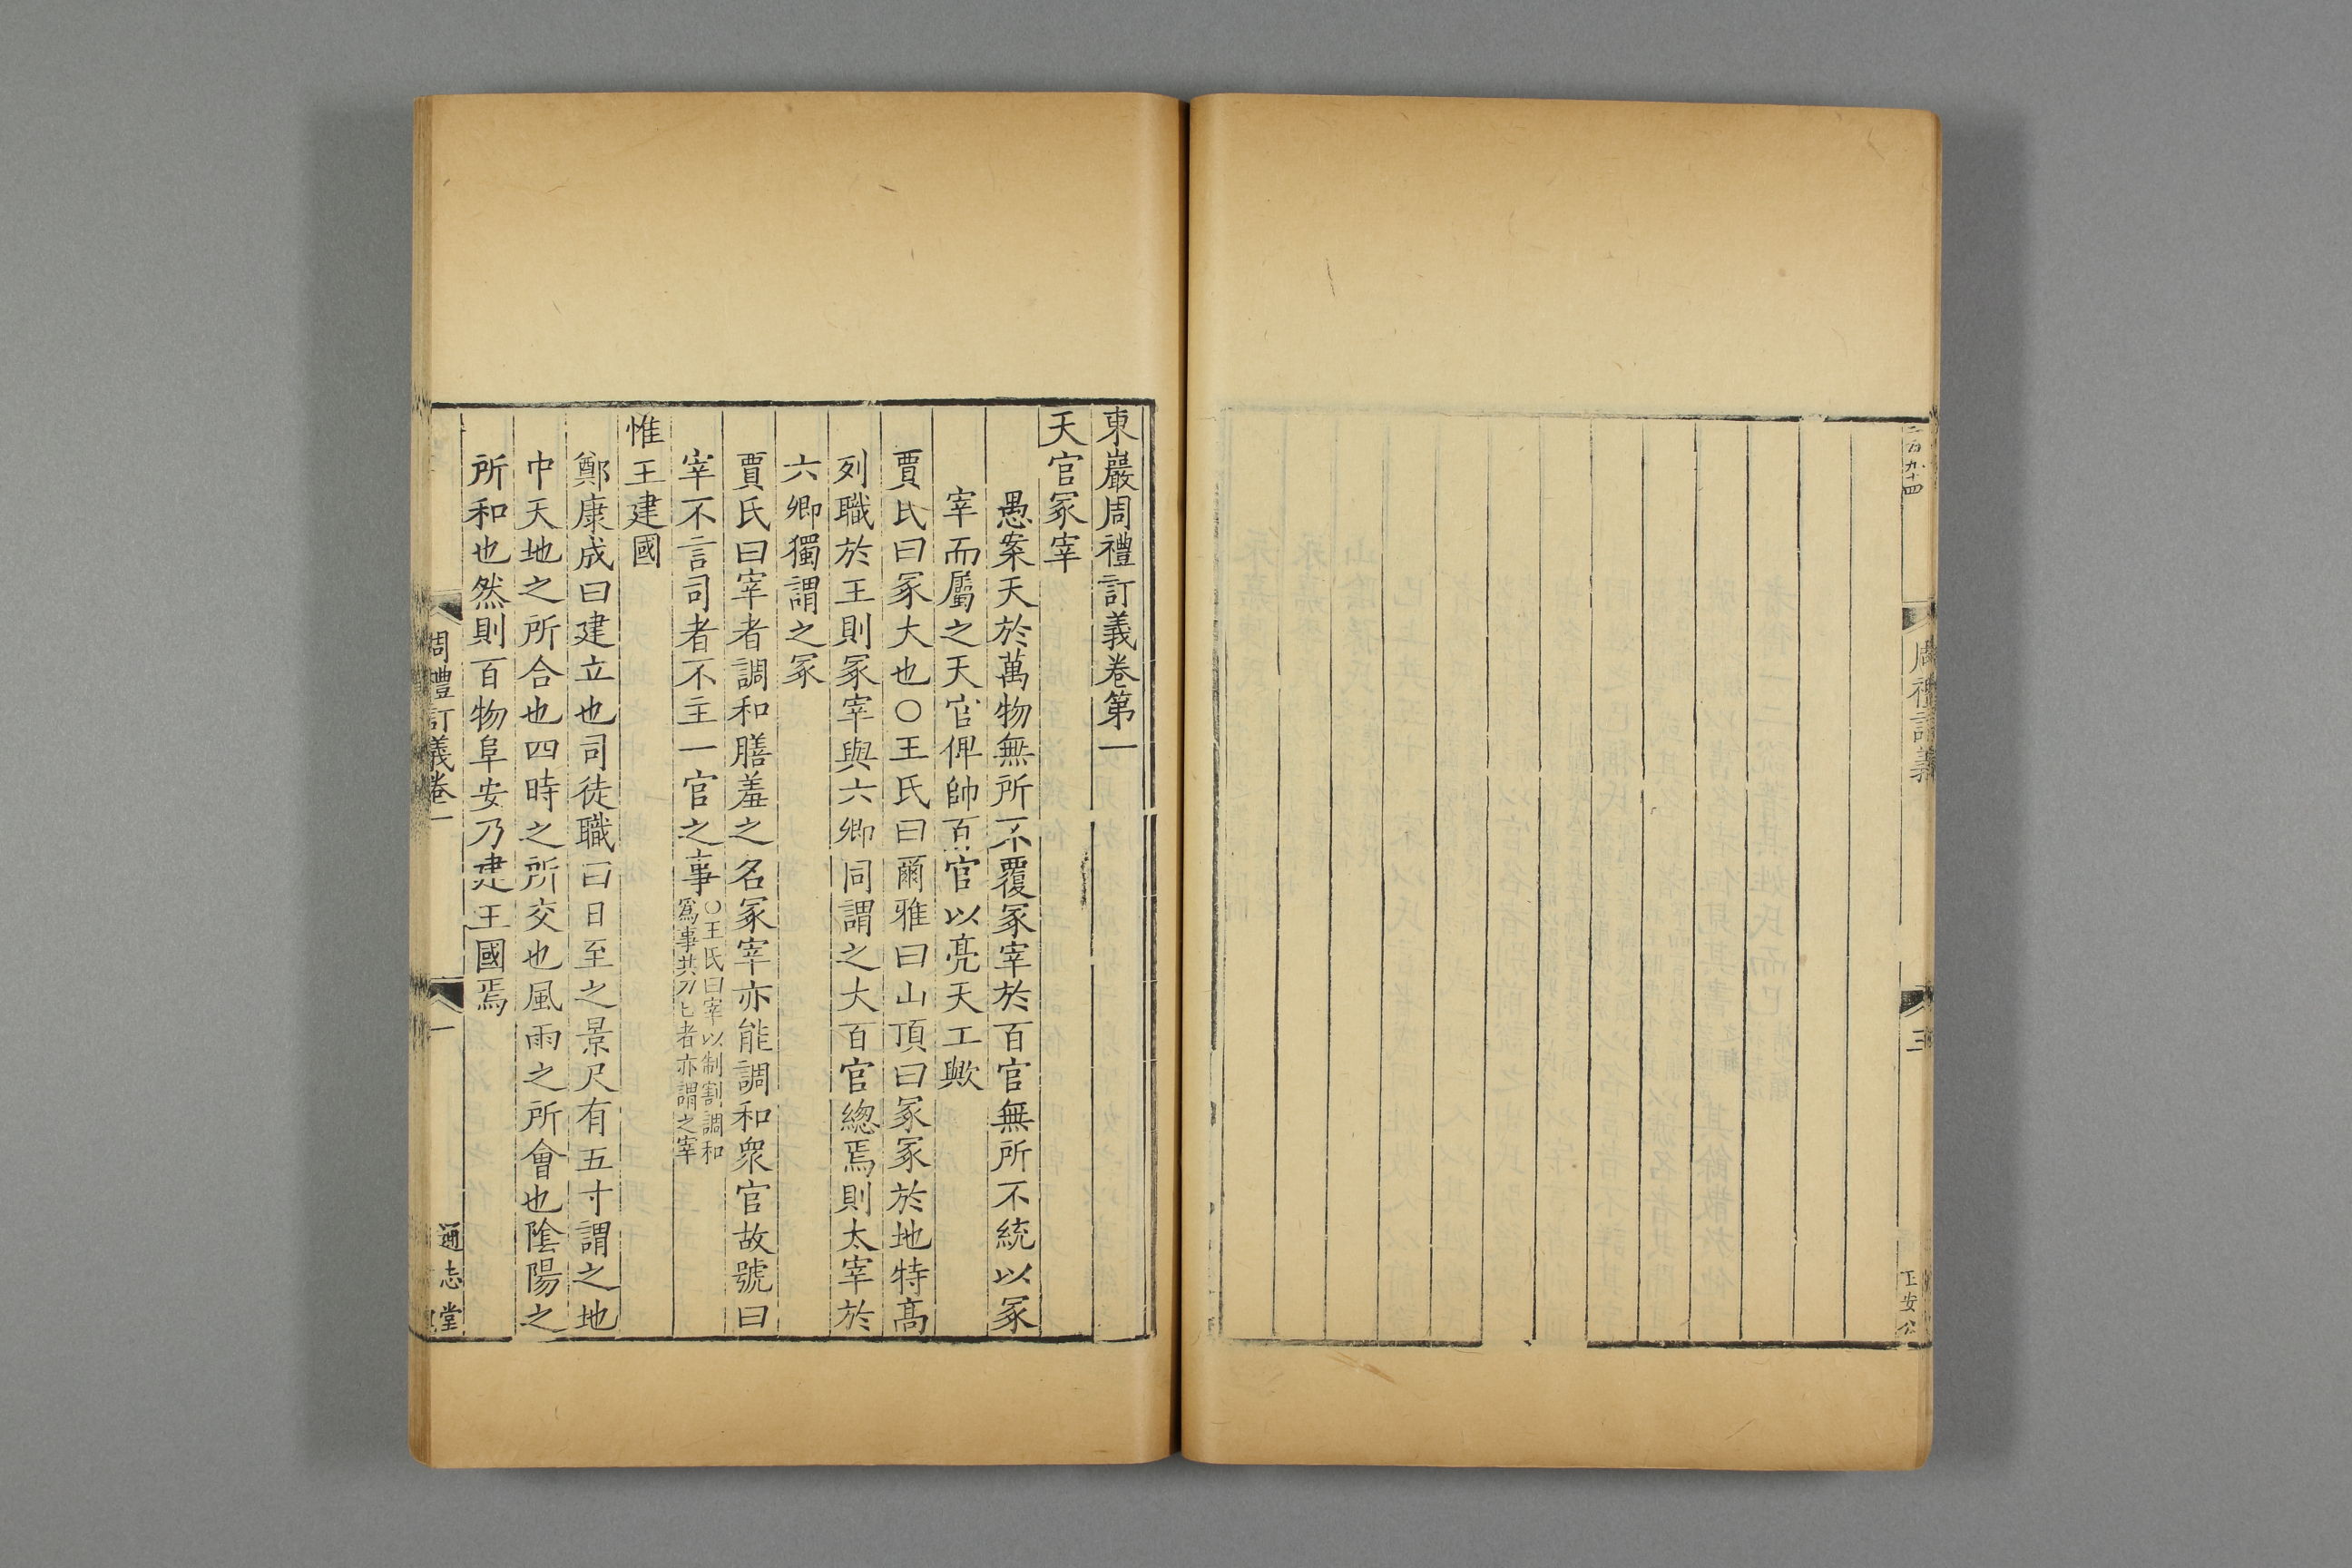 周禮訂義
三
東巖周禮訂義卷第一
天官冢宰
愚案天於萬物無所不覆冢宰於百官無所不統以冢
宰而屬之天官俾帥百官以亮天工歟
賈氏曰冢大也○王氏曰爾雅曰山頂曰冢冢於地特高
列職於王則冢宰與六卿同謂之大百官總焉則太宰於
六卿獨謂之冢
賈氏曰宰者調和膳羞之名冢宰亦能調和衆官故號曰
宰不言司者不主一官之事○王氏曰宰以制割調和
爲事共刀匕者亦謂之宰
惟王建國
鄭康成曰建立也司徒職曰日至之景尺有五寸謂之地
中天地之所合也四時之所交也風雨之所會也陰陽之
所和也然則百物阜安乃建王國焉
周禮訂義卷一
一
通志堂